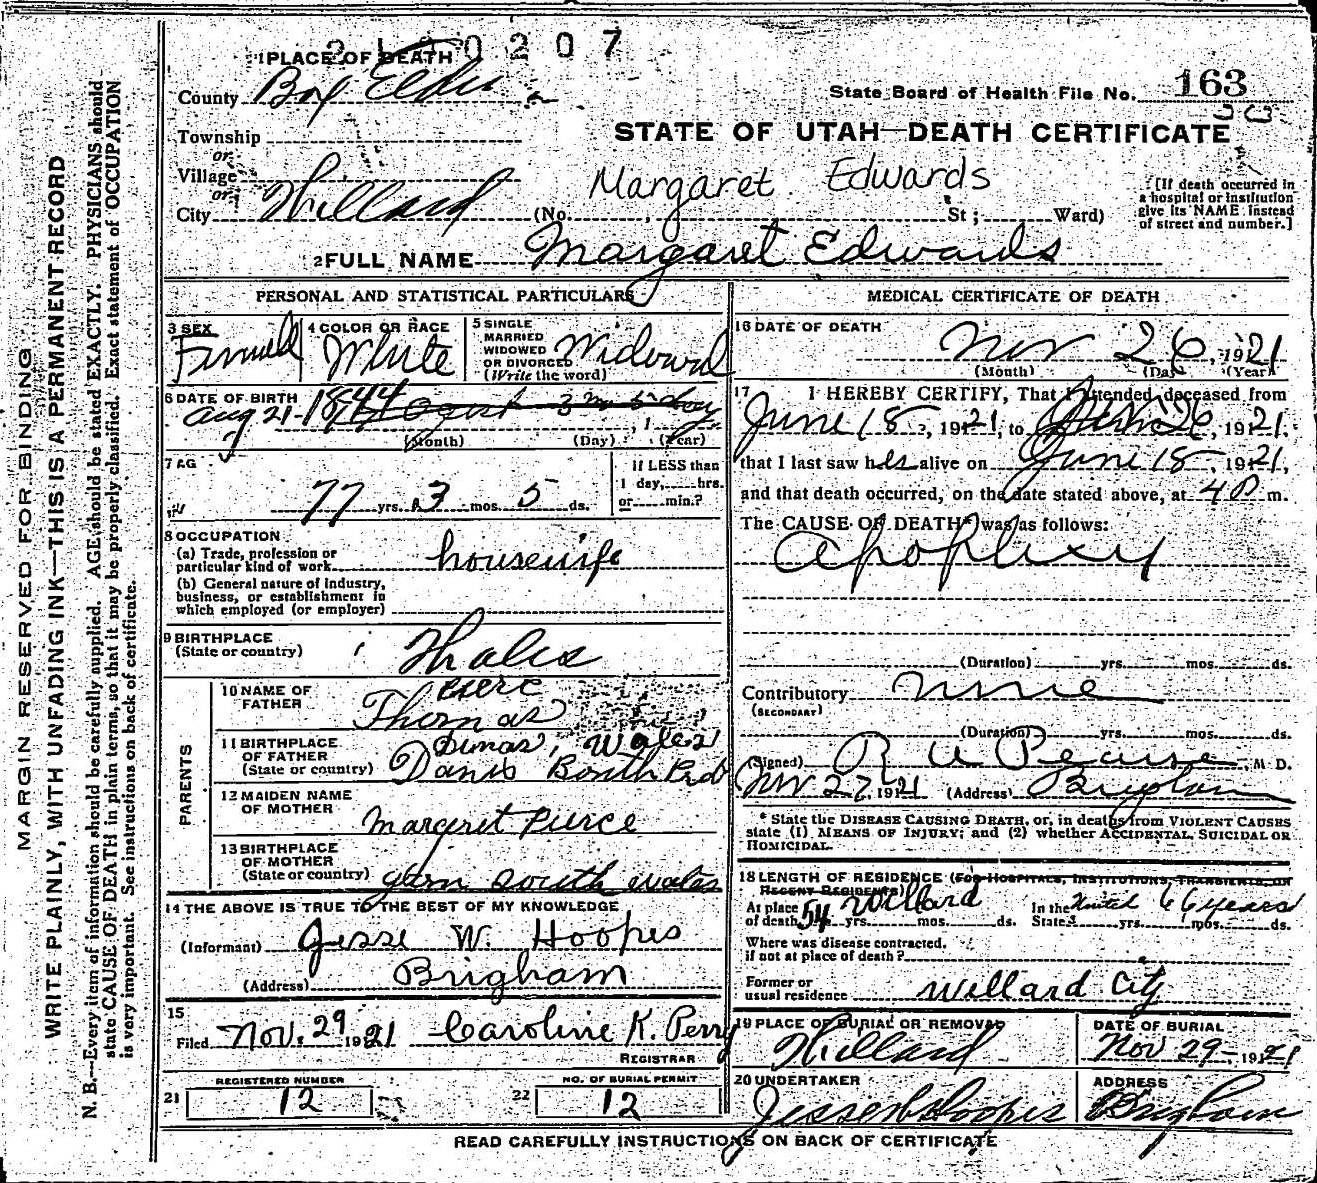 MARGIN RESERVED FOR BINDING
WRITE PLAINLY, WITH UNFADING INK—THIS IS A PERMANENT RECORD
N. B.—Every item of information should be carefully supplied. AGE should be stated EXACTLY. PHYSICIANS should
state CAUSE OF DEATH in plain terms, so that it may be properly classified. Exact statement of OCCUPATION
is very important. See instructions on back of certificate.
1 PLACE OF DEATH
0207
County Box Elder
State Board of Health File No. 163
Township
or
Village
or
City Willard
STATE OF UTAH—DEATH CERTIFICATE
Margaret Edwards
(No. , St ; Ward)
[If death occurred in
a hospital or institution
give its NAME instead
of street and number.]
2 FULL NAME Margaret Edwards
PERSONAL AND STATISTICAL PARTICULARS
3 SEX Femall
4 COLOR OR RACE White
5 SINGLE
MARRIED
WIDOWED
OR DIVORCED
(Write the word)
Widowed
6 DATE OF BIRTH
Aug 21-1844
(Month) (Day) , 1 (Year)
7 AG
77 yrs. 3 mos. 5 ds.
If LESS than
1 day, hrs.
or min.?
8 OCCUPATION
(a) Trade, profession or
particular kind of work housewife
(b) General nature of industry,
business, or establishment in
which employed (or employer)
9 BIRTHPLACE
(State or country) Whales
PARENTS
10 NAME OF
FATHER Thomas
11 BIRTHPLACE
OF FATHER
(State or country) Wales
12 MAIDEN NAME
OF MOTHER Margeret Pierce
13 BIRTHPLACE
OF MOTHER
(State or country) south wales
14 THE ABOVE IS TRUE TO THE BEST OF MY KNOWLEDGE
(Informant) Jesse W. Hoopes
(Address) Brigham
15
Filed Nov. 29 1921 Caroline K. Perry
REGISTRAR
REGISTERED NUMBER
21 12
NO. OF BURIAL PERMIT
22 12
MEDICAL CERTIFICATE OF DEATH
16 DATE OF DEATH
Nov 26, 1921
(Month) (Day) (Year)
17 I HEREBY CERTIFY, That I attended deceased from
June 18, 1921, to 26, 1921,
that I last saw h alive on June 18, 1921,
and that death occurred, on the date stated above, at 4 m.
The CAUSE OF DEATH* was as follows:
Apoplexy
(Duration) yrs. mos. ds.
Contributory None
(SECONDARY)
(Duration) yrs. mos. ds.
(Signed) R A Pearse, M D.
Nov 27, 1921 (Address) Brigham
* State the DISEASE CAUSING DEATH, or, in deaths from VIOLENT CAUSES
state (1) MEANS OF INJURY; and (2) whether ACCIDENTAL, SUICIDAL OR
HOMICIDAL.
18 LENGTH OF RESIDENCE (FOR HOSPITALS, INSTITUTIONS, TRANSIENTS, OR
RECENT RESIDENTS)
At place
of death 54 yrs. mos. ds. Willard
In the
State yrs. mos. ds. 66 years
Where was disease contracted,
if not at place of death?
Former or
usual residence Willard City
19 PLACE OF BURIAL OR REMOVAL
Willard
DATE OF BURIAL
Nov 29-1921
20 UNDERTAKER
ADDRESS
Brigham
READ CAREFULLY INSTRUCTIONS ON BACK OF CERTIFICATE